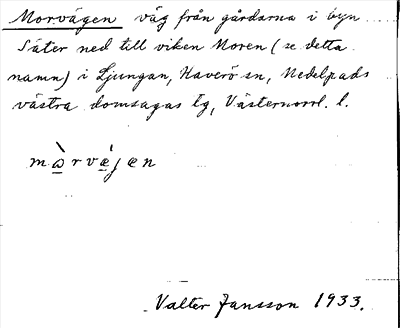 Morvägen väg från gårdarna i byn
Säter ned till viken Moren (se detta
namn) i Ljungan, Haverö sn, Medelpads
västra domsagas tg, Västernorrl. l.
mɷ̀rvæ̀jen
Valter Jansson 1933.